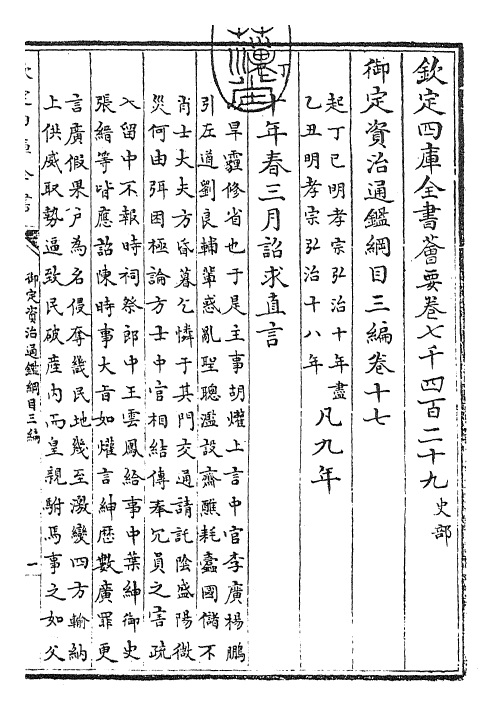 欽定四庫全書薈要卷七千四百二十九史部
御定資治通鑑綱目三編卷十七
起丁巳明孝宗弘治十年盡
乙丑明孝宗弘治十八年
凡九年
十年春三月詔求直言
旱霾修省也于是主事胡爟上言中官李廣楊鵬
引左道劉良輔輩惑亂聖聰濫設齋醮耗蠹國儲不
肖士大夫方昏暮乞憐于其門交通請託陰盛陽微
災何由弭因極論方士中官相結傳奉冗員之害疏
入留中不報時祠祭郎中王雲鳳給事中葉紳御史
張縉等皆應詔陳時事大旨如爟言紳歷數廣罪更
言廣假果戶為名侵奪畿民地幾至激變四方輸納
上供威取勢逼致民破產內而皇親駙馬事之如父
御定資治通鑑綱目三編
一